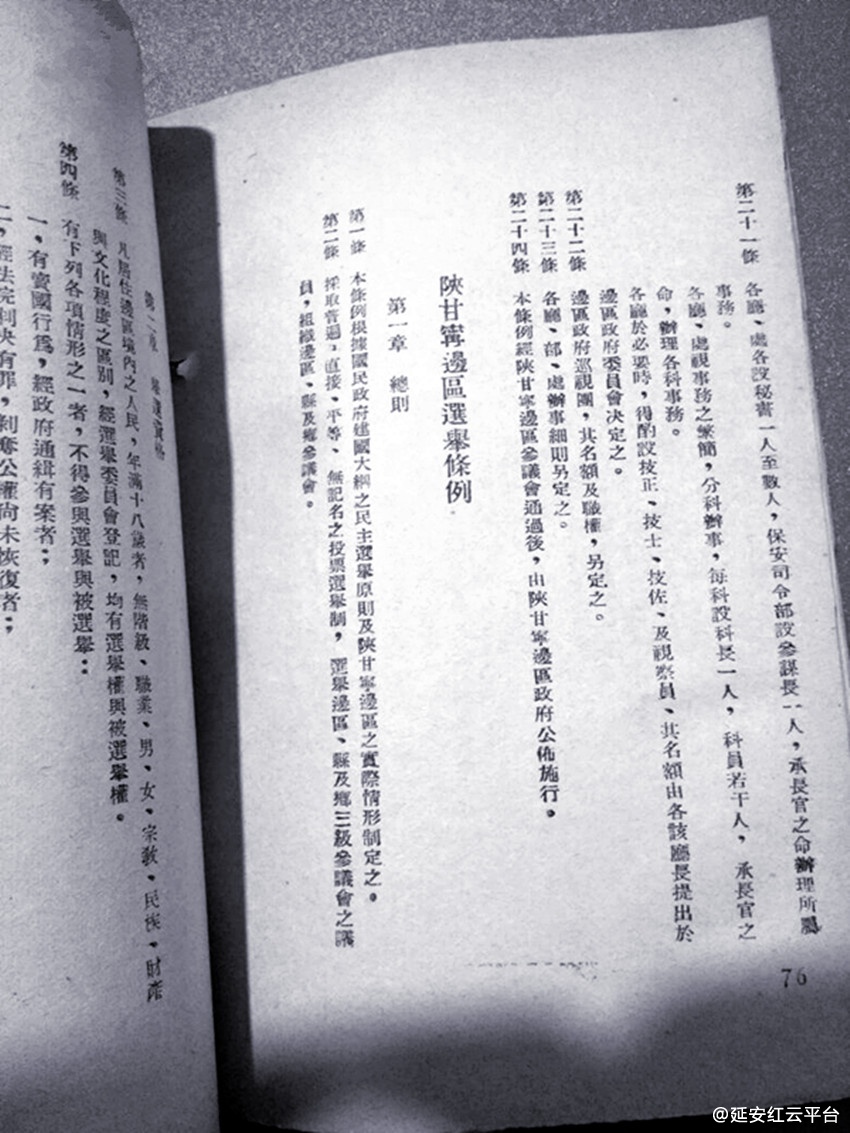 第二十一條 各廳、處各設秘書一人至數人，保安司令部設參謀長一人，承長官之命辦理所屬
事務。
各廳、處視事務之繁簡，分科辦事，每科設科長一人，科員若干人，承長官之
命，辦理各科事務。
各廳於必要時，得酌設技正、技士、技佐、及視察員、其名額由各該廳長提出於
邊區政府委員會決定之。
第二十二條 邊區政府巡視團，其名額及職權，另定之。
第二十三條 各廳、部、處辦事細則另定之。
第二十四條 本條例經陝甘寧邊區參議會通過後，由陝甘寧邊區政府公佈施行。
陝甘寧邊區選舉條例
第一章 總則
第一條 本條例根據國民政府建國大綱之民主選舉原則及陝甘寧邊區之實際情形制定之。
第二條 採取普遍、直接、平等、無記名之投票選舉制，選舉邊區、縣及鄉三級參議會之議
員，組織邊區、縣及鄉參議會。
76
第二章 選舉資格
第三條 凡居住邊區境內之人民，年滿十八歲者，無階級、職業、男、女、宗教、民族、財產
與文化程度之區別，經選舉委員會登記，均有選舉權與被選舉權。
第四條 有下列各項情形之一者，不得參與選舉與被選舉：
一、有賣國行爲，經政府通緝有案者；
二、經法院判決有罪，剝奪公權尚未恢復者；
@延安红云平台